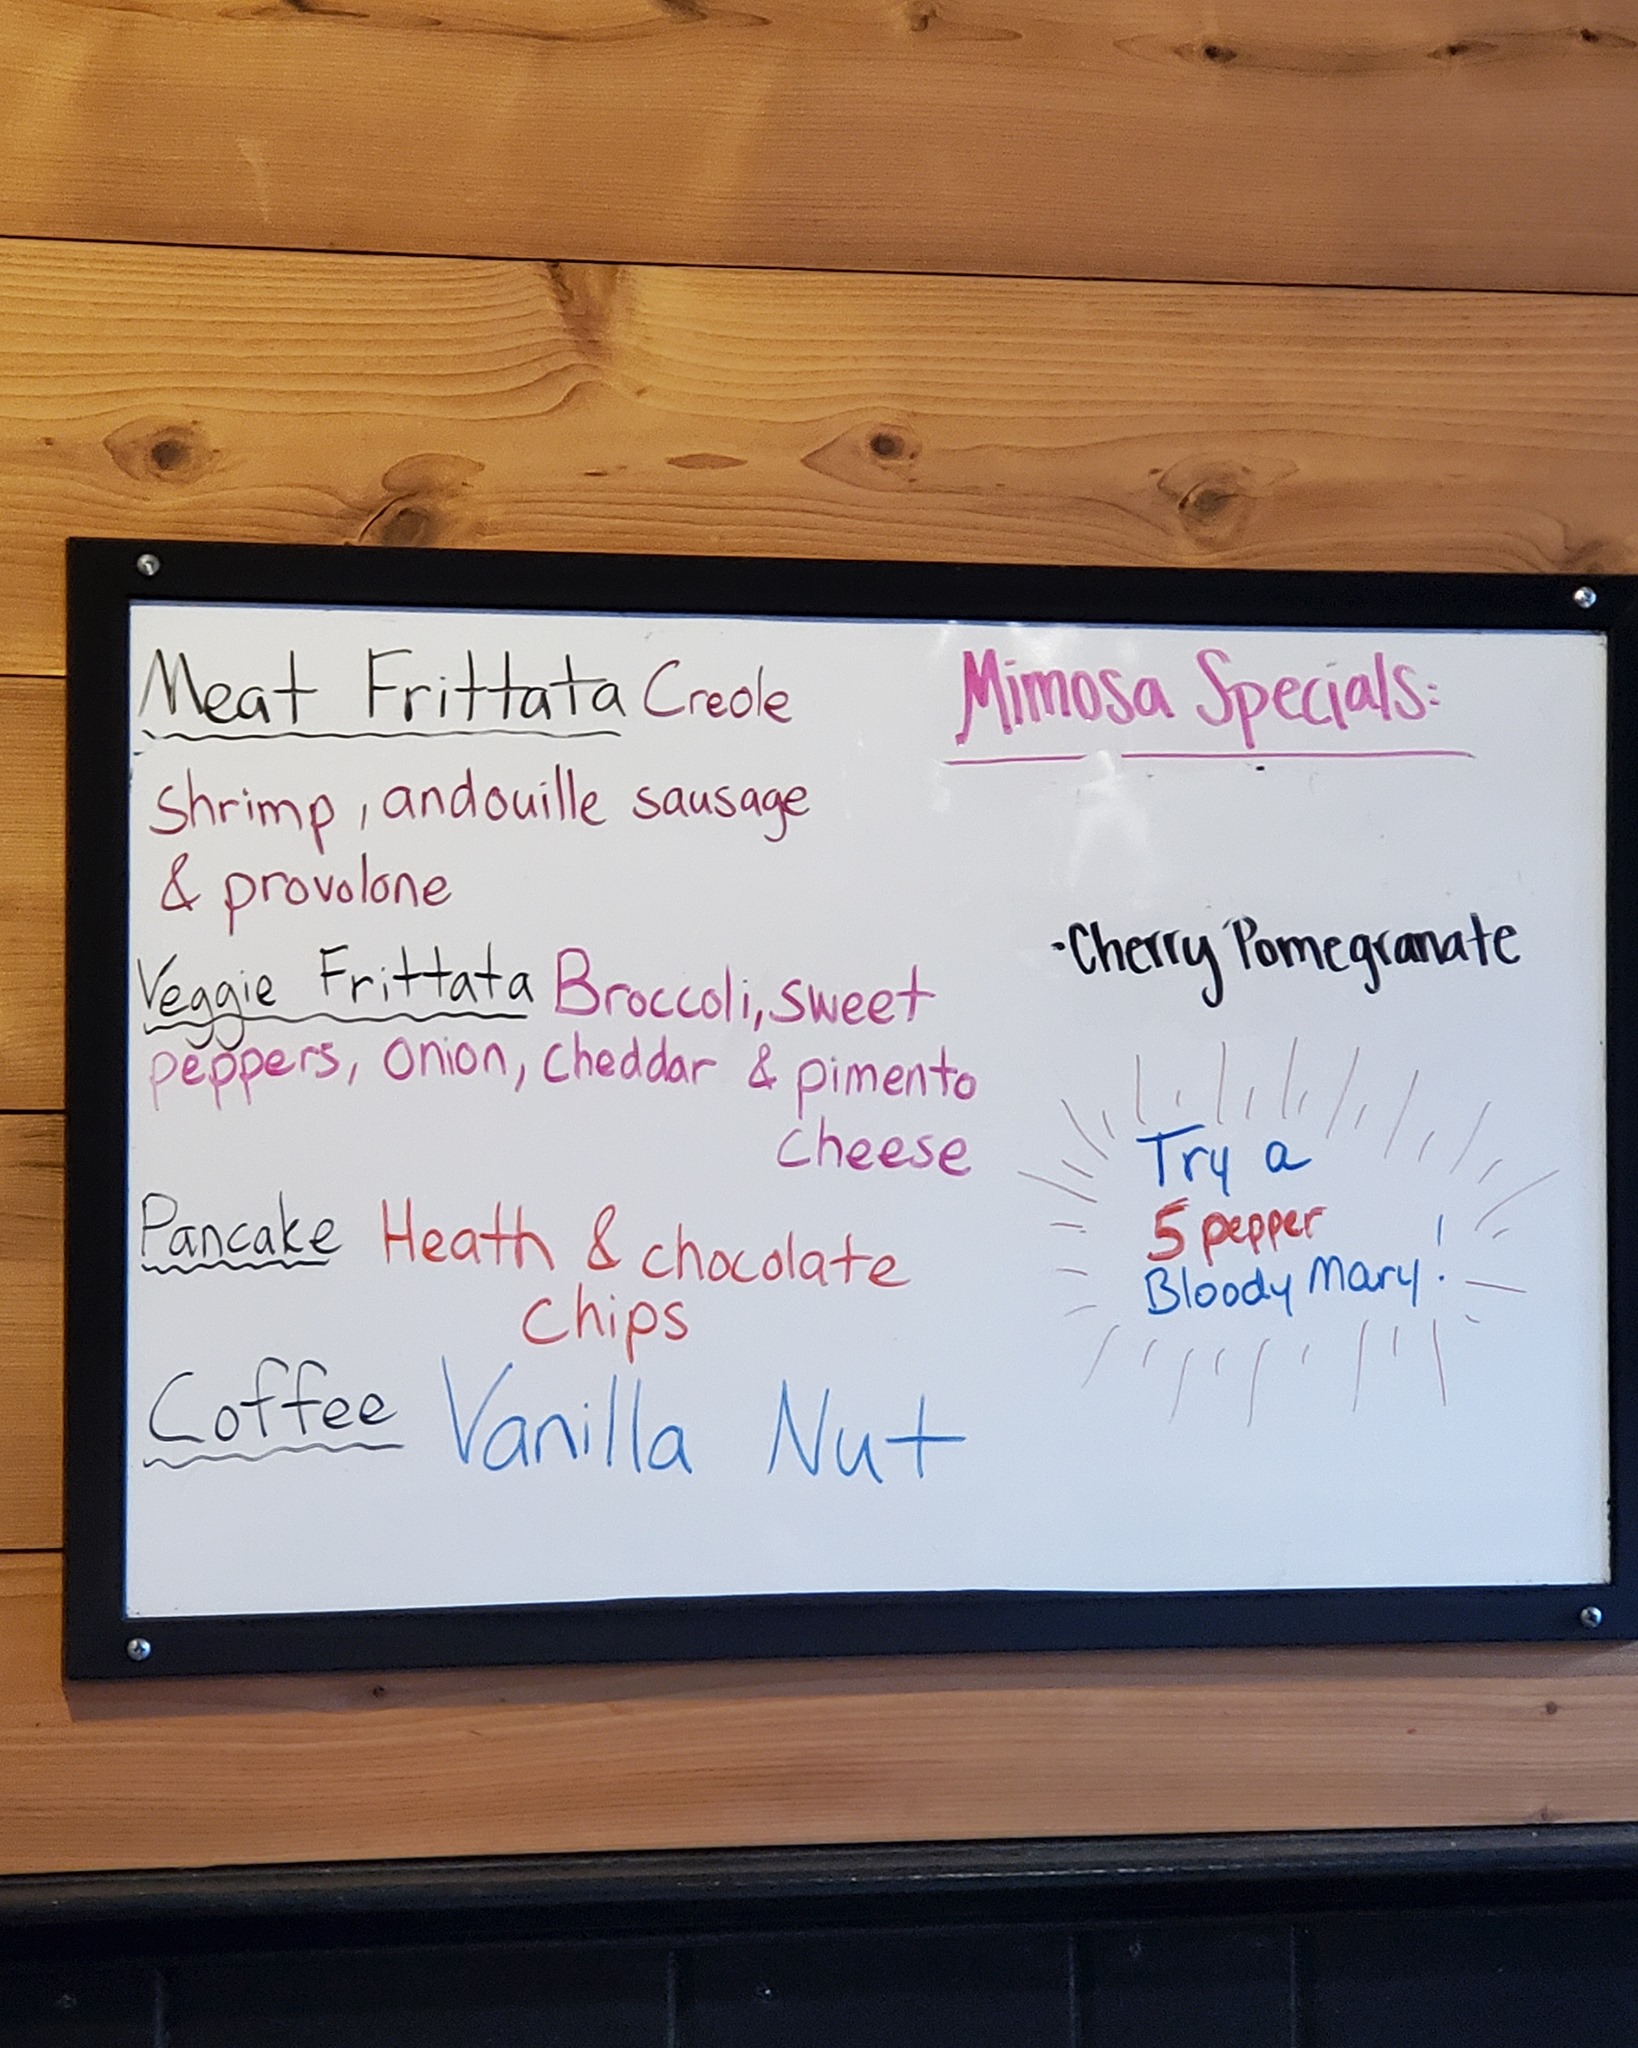 Meat Frittata Creole
shrimp, andouille sausage
& provolone
Veggie Frittata Broccoli, sweet
peppers, onion, cheddar & pimento
cheese
Pancake Heath & chocolate
chips
Coffee Vanilla Nut
Mimosa Specials:
·Cherry Pomegranate
Try a
5 pepper
Bloody Mary!